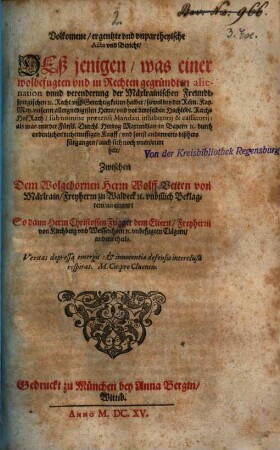 Bav. No. 966.
Volkomene / ergentzte vnd vnpartheyische
Acta vnd Bericht /
Deß jenigen / was einer
wolbefugten vnd in Rechten gegründten alie-
nation vnnd verenderung der Mäxlrainischen Freundt-
Recht vnd Gerechtigkeiten halber / sowol bey der Röm. Kay.
May. vnserm allergnedigsten Herrn / vnd vor derselben Hochlöbl. Reichs
Hof Rath / sub nomine prætensi Mandati inhibitorij & cassatorij:
als mas mit der Fürstl. Durchl. Hertzog Maximilian in Bayern
ordenlicher rechtmessigen Kauff vnd sonst anderwerts bißhero
fürgangen / auch sich noch verloren
helt /
Von der Kreisbibliothek Regensburg
Zwischen
Dem Wolgebornen Herrn Wolff-Veiten von
Mäxlrain / Freyherrn zu Waldeck &c. vnbillich Beklag-
tem / an einem:
So dann Herrn Christoffen Fugger dem Eltern / Freyherrn
von Kirchberg vnd Weissenhorn &c. vnbefugten Clägern /
anderntheils.
Veritas depressa emergit: & innocentia defensio interclusa
respirat. M. Cic. pro Cluentio.
Gedruckt zu München bey Anna Bergin /
Wittib.
Anno M. DC. XV.